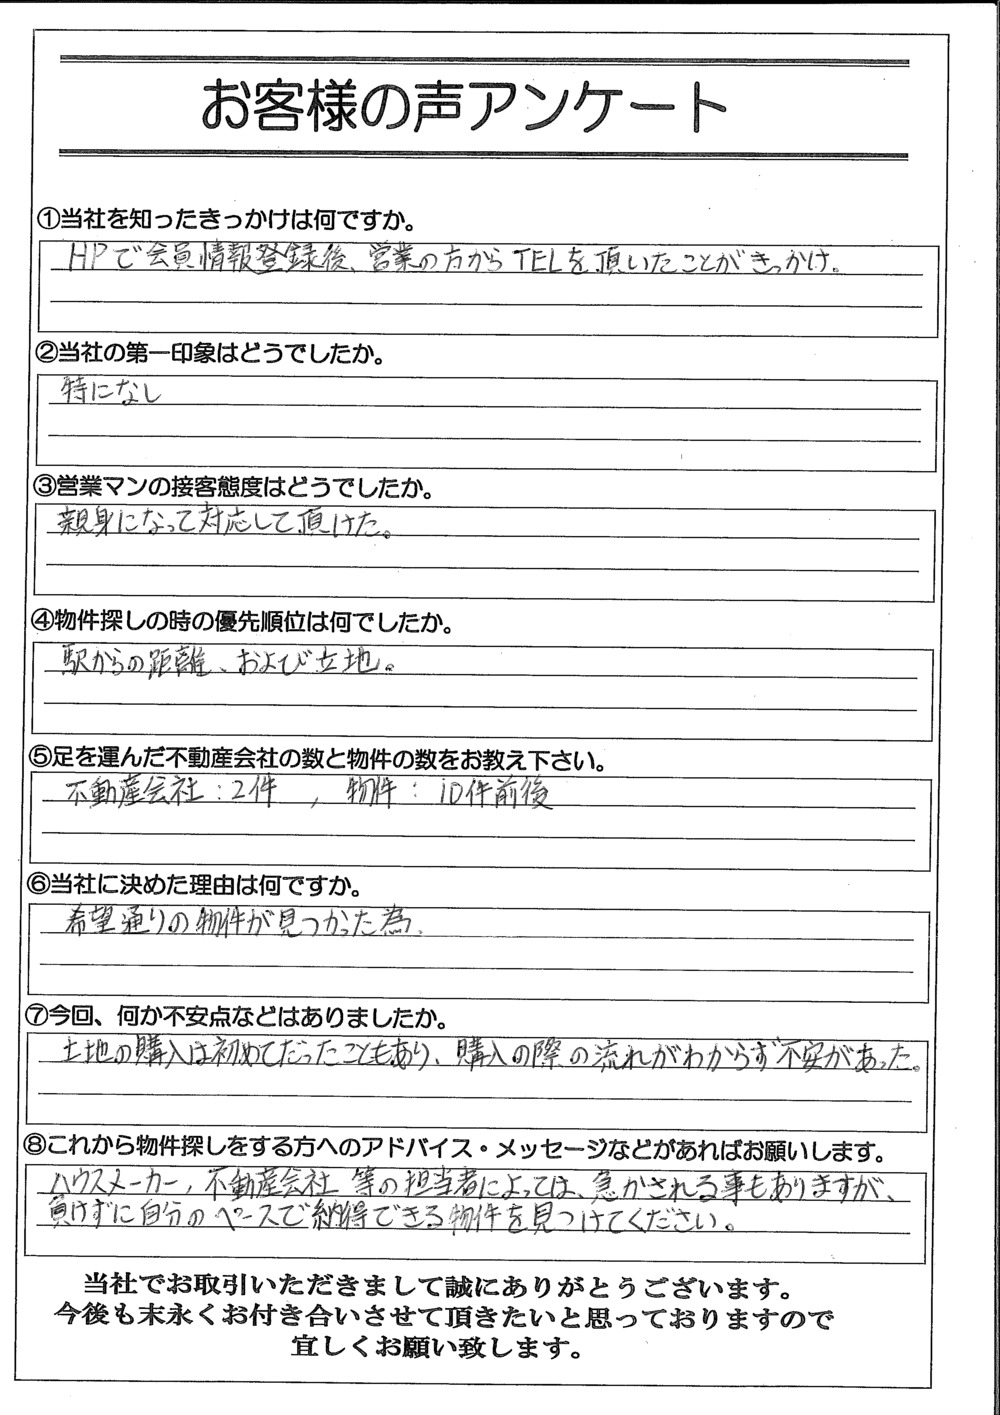 お客様の声アンケート
①当社を知ったきっかけは何ですか。
HPで会員情報登録後、営業の方からTELを頂いたことがきっかけ。
②当社の第一印象はどうでしたか。
特になし
③営業マンの接客態度はどうでしたか。
親身になって対応して頂けた。
④物件探しの時の優先順位は何でしたか。
駅からの距離、および立地。
⑤足を運んだ不動産会社の数と物件の数をお教え下さい。
不動産会社:2件 , 物件: 10件前後
⑥当社に決めた理由は何ですか。
希望通りの物件が見つかった為.
⑦今回、何か不安点などはありましたか。
土地の購入は初めてだったこともあり、購入の際の流れがわからず不安があった。
⑧これから物件探しをする方へのアドバイス・メッセージなどがあればお願いします。
ハウスメーカー, 不動産会社 等の担当者によっては、急かされる事もありますが、
負けずに自分のペースで納得できる物件を見つけてください。
当社でお取引いただきまして誠にありがとうございます。
今後も末永くお付き合いさせて頂きたいと思っておりますので
宜しくお願い致します。